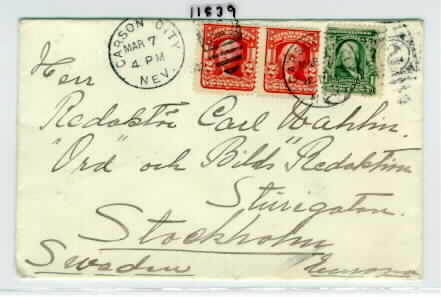 11839
CARSON CITY
MAR 7
4 PM
NEV.
Herr
Redaktör Carl Wahlin.
"Ord" och Bilds" Redaktion
Sturegatan.
Stockholm
Sweden